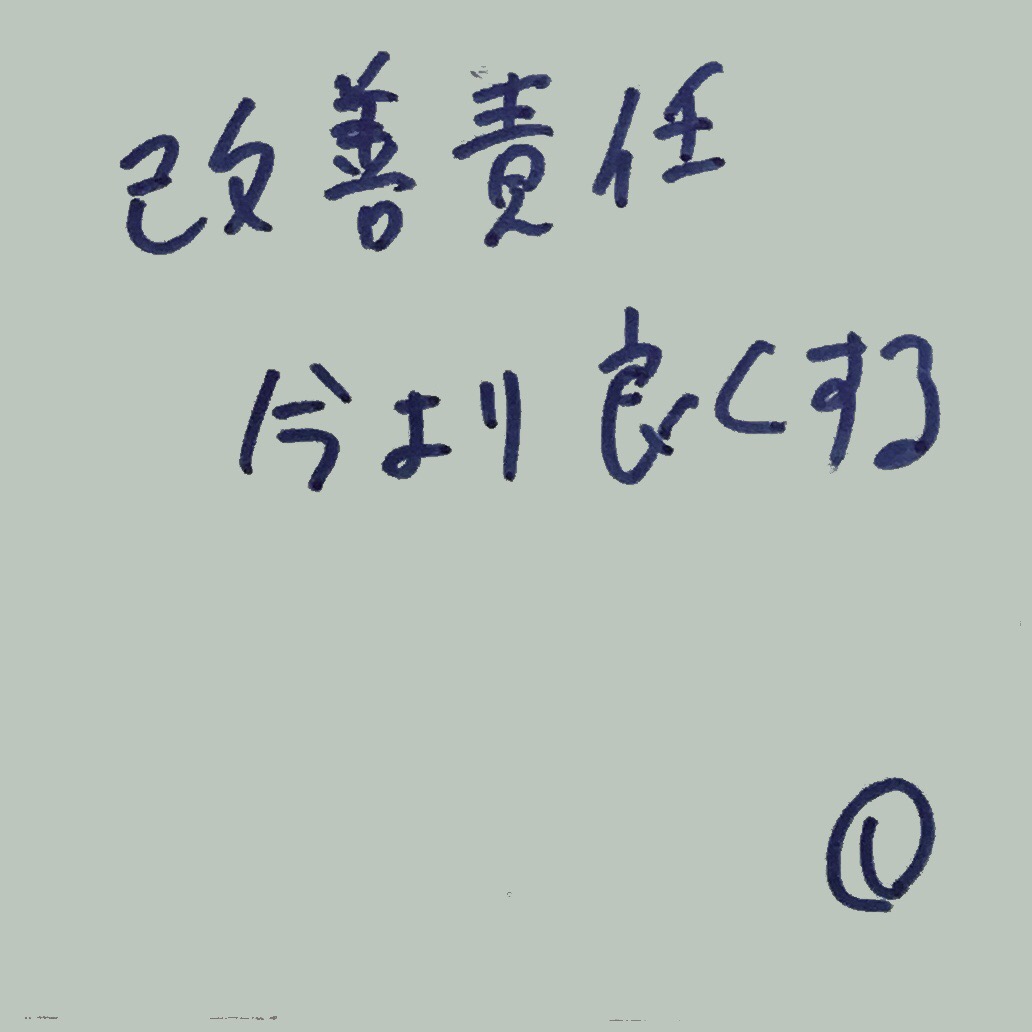 改善責任
今より良くする